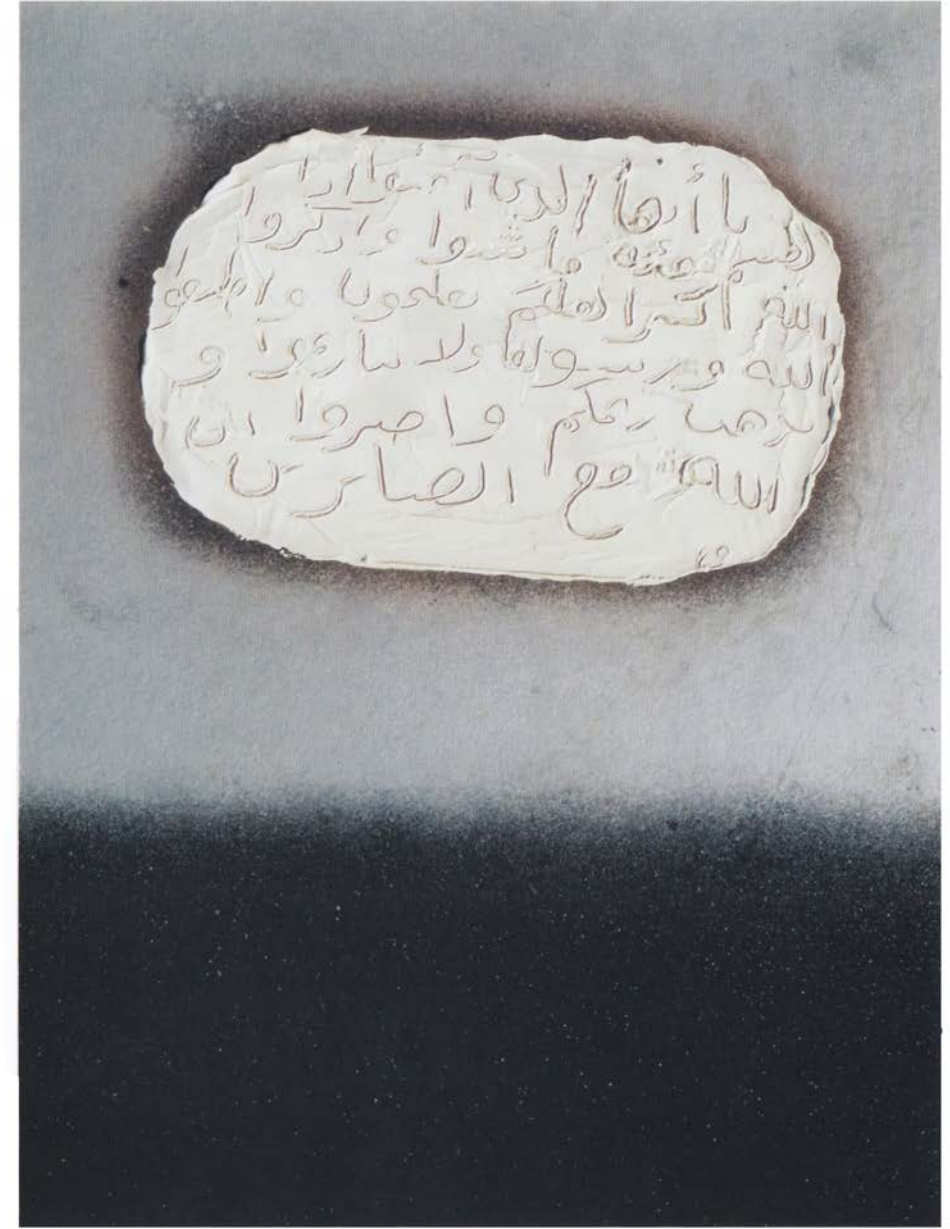 يا أيها الذين آمنوا اذا
لقيتم فئة فاثبتوا واذكروا
الله كثيرا لعلكم تفلحون واطيعوا
الله ورسوله ولا تنازعوا و
تذهب ريحكم واصبروا ان
الله مع الصابرين